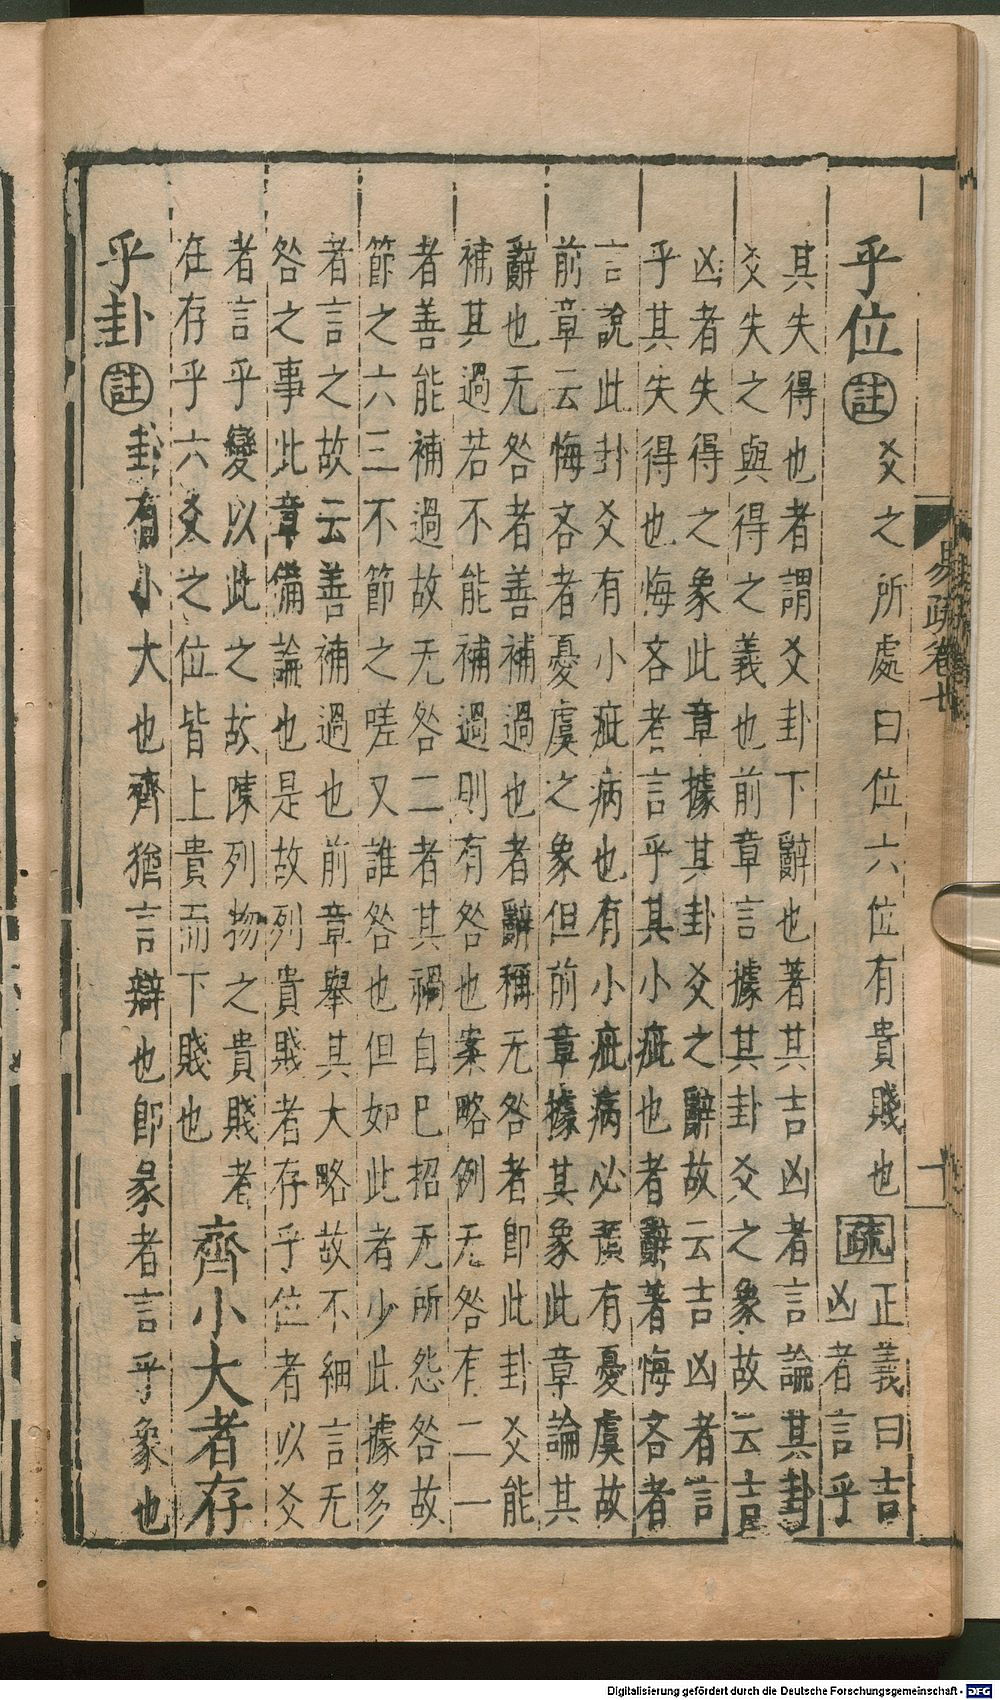 易疏卷七
十
乎位 註 爻之所處曰位六位有貴賤也 疏 正義曰吉
凶者言乎
其失得也者謂爻卦下辭也著其吉凶者言論其卦
爻失之與得之義也前章言據其卦爻之象故云吉
凶者失得之象此章據其卦爻之辭故云吉凶者言
乎其失得也悔吝者言乎其小疵也者辭著悔吝者
言說此卦爻有小疵病也有小疵病必有憂虞故
前章云悔吝者憂虞之象但前章據其象此章論其
辭也无咎者善補過也者辭稱无咎者即此卦爻能
補其過若不能補過則有咎也案略例无咎有二一
者善能補過故无咎二者其禍自已招无所怨咎故
節之六三不節之嗟又誰咎也但如此者少此據多
者言之故云善補過也前章舉其大略故不細言无
咎之事此章備論也是故列貴賤者存乎位者以爻
者言乎變以此之故陳列物之貴賤者
在存乎六爻之位皆上貴而下賤也
齊小大者存
乎卦 註 卦有小大也齊猶言辯也即彖者言乎象也
Digitalisierung gefördert durch die Deutsche Forschungsgemeinschaft - DFG